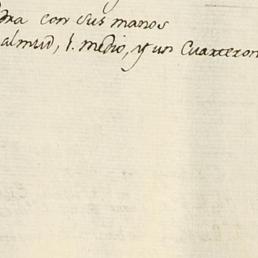 con sus manos
almud, 1. medio, y un Cuarteron